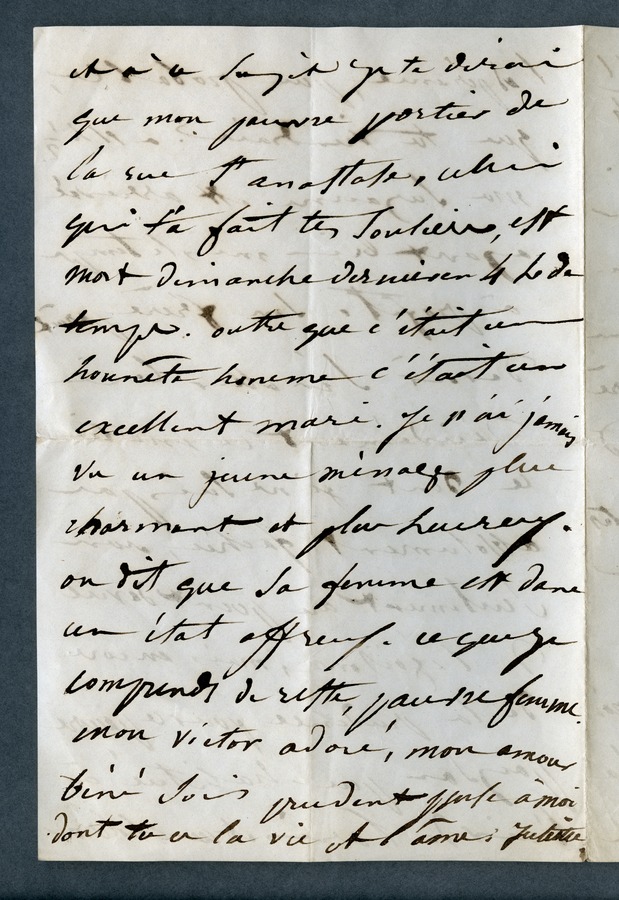 et à ce sujet je te dirai
que mon pauvre portier de
la rue St anastase, celui
qui t'a fait tes souliers, est
mort dimanche dernier en 4 h de
temps. outre que c'était un
honnête homme c'était un
excellent mari. Je n'ai jamais
vu un jeune ménage plus
charmant et plus heureux.
on dit que sa femme est dans
un état affreux. ce que je
comprends de reste, pauvre femme.
mon victor adoré, mon amour
béni sois prudent pense à moi
dont tu es la vie et l'âme. Juliette